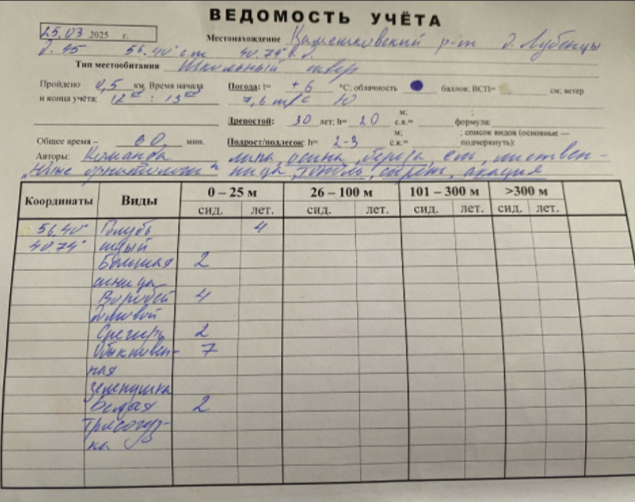 ВЕДОМОСТЬ УЧЁТА
25.03 2025 г. Местонахождение Камешковский р-он д. Лубенцы
д. 45 56.40° с.ш 40.74° в.д.
Тип местообитания Школьный сквер
Пройдено 0,5 км. Время начала Погода: t= +6 °С; облачность баллов. ВСП= см; ветер
и конца учёта: 12 00 : 13 00 7,6 м/с 10
м; ;
Древостой: 30 лет; h= 20 с.к.= формула:
м; ; список видов (основные —
Общее время – 60 мин. Подрост/подлесок: h= 2-3 с.к.= подчеркнуть):
Авторы: Команда липа, осина, береза, ель, листвен-
"Юные орнитологи" ница, тополь, сирень, акация
Координаты Виды 0 – 25 м 26 – 100 м 101 – 300 м >300 м
сид. лет. сид. лет. сид. лет. сид. лет.
56,40° Голубь 4
40.74° сизый
Большая 2
синица
Воробей 4
домовой
Снегирь 2
Обыкновен- 7
ная
зеленушка
Белая 2
трясогуз-
ка